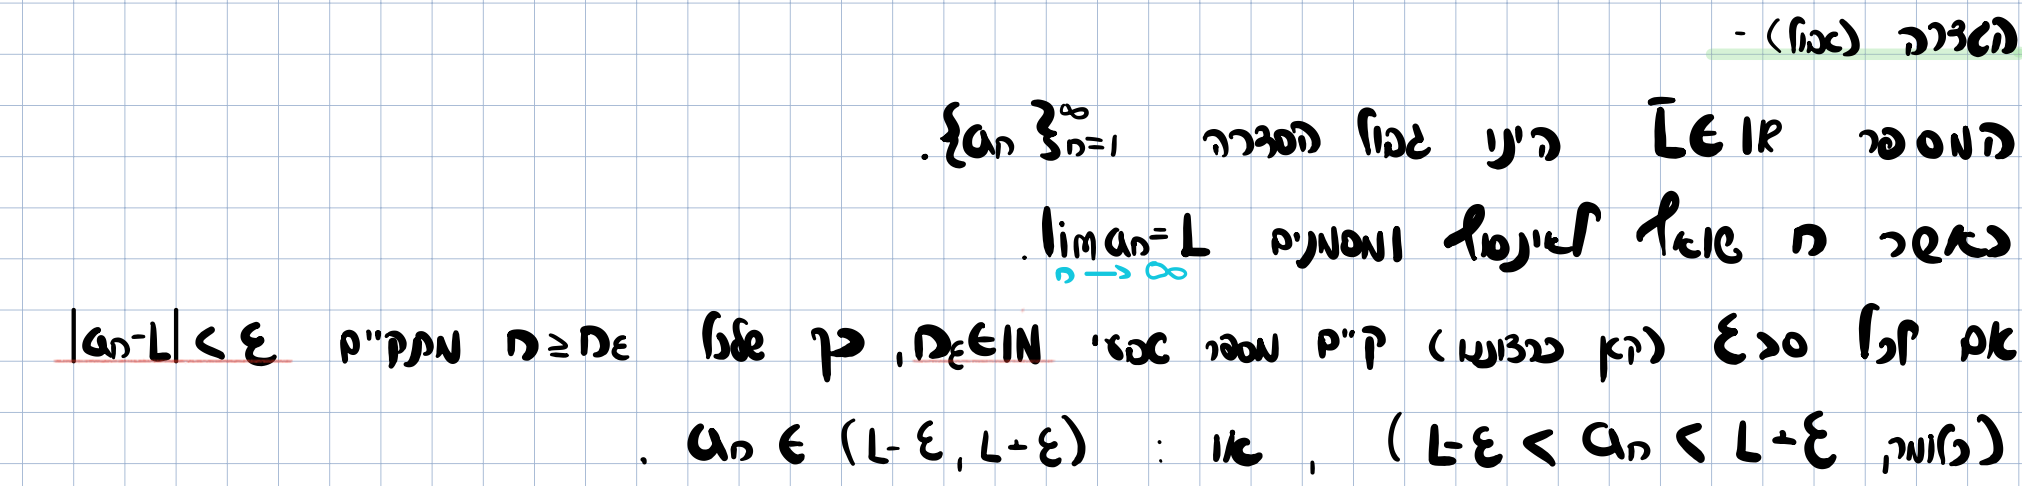 הגדרה (גבול) -
המספר L∈ℝ הינו גבול הסדרה {aₙ}ₙ₌₁^∞.
כאשר n שואף לאינסוף ומסמנים lim aₙ=L.
n→∞
אם לכל ε>0 (קטן כרצוננו) קיים מספר טבעי n_ε∈ℕ, כך שלכל n≥n_ε מתקיים |aₙ-L|<ε
(כלומר, L-ε<aₙ<L+ε), או: aₙ∈(L-ε, L+ε).